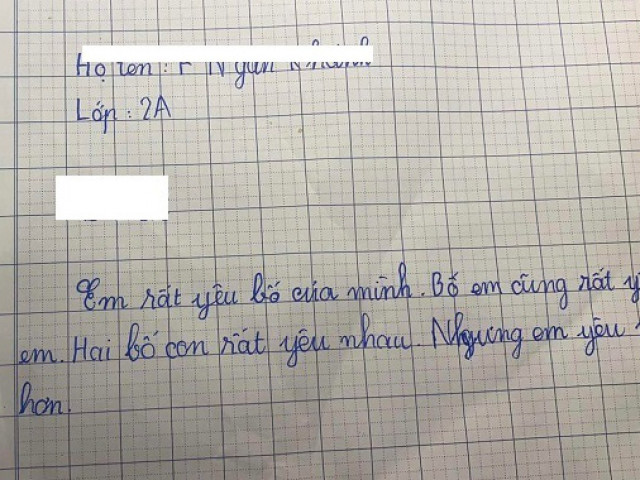 Họ tên :
Lớp : 2A
Em rất yêu bố của mình. Bố em cũng rất
em. Hai bố con rất yêu nhau. Nhưng em yêu
hơn.